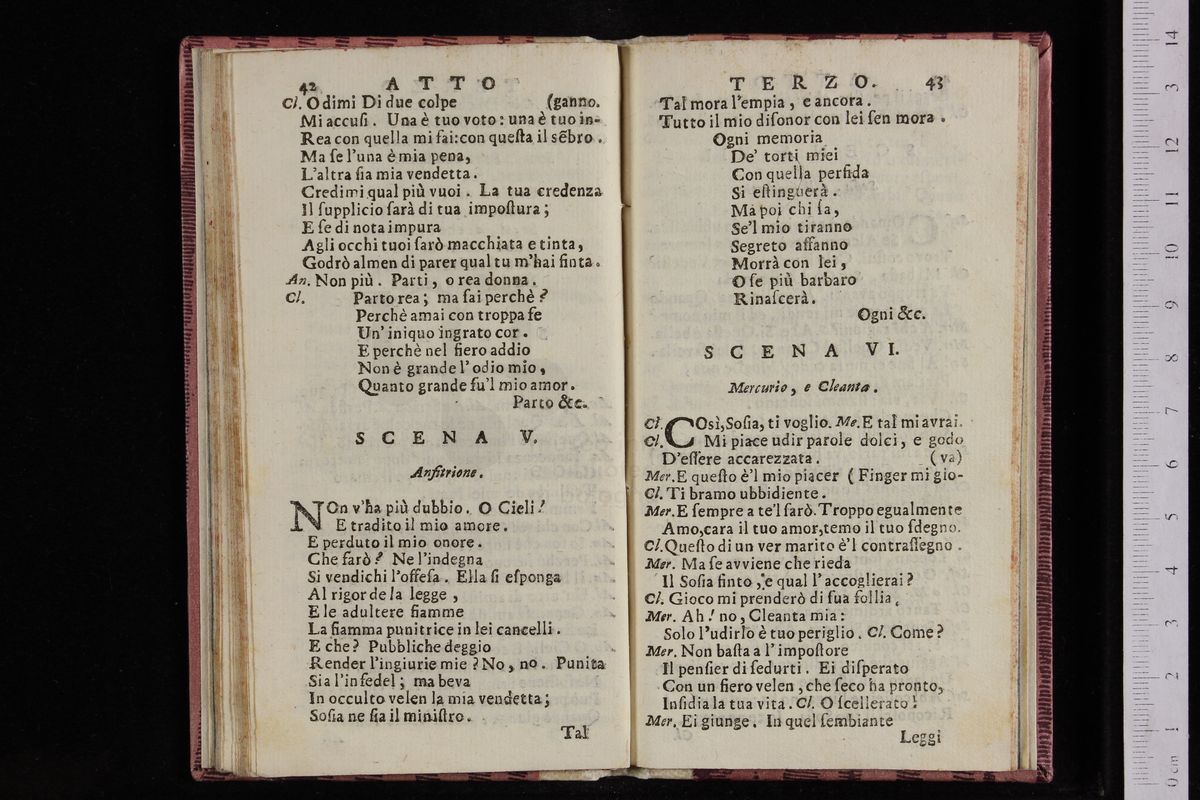 42 ATTO
Cl. Odimi Di due colpe (ganno.
Mi accuſi. Una è tuo voto: una è tuo in-
Rea con quella mi fai: con queſta il sẽbro.
Ma ſe l'una è mia pena,
L'altra ſia mia vendetta.
Credimi qual più vuoi. La tua credenza
Il ſupplicio ſarà di tua impoſtura;
E ſe di nota impura
Agli occhi tuoi ſarò macchiata e tinta,
Godrò almen di parer qual tu m'hai finta.
An. Non più. Parti, o rea donna.
Cl. Parto rea; ma ſai perchè?
Perchè amai con troppa fe
Un' iniquo ingrato cor.
E perchè nel fiero addio
Non è grande l' odio mio,
Quanto grande fu'l mio amor.
Parto &c.
SCENA V.
Anfitrione.
NOn v'ha più dubbio. O Cieli!
E tradito il mio amore.
E perduto il mio onore.
Che farò? Ne l'indegna
Si vendichi l'offeſa. Ella ſi eſponga
Al rigor de la legge,
E le adultere fiamme
La fiamma punitrice in lei cancelli.
E che? Pubbliche deggio
Render l'ingiurie mie? No, no. Punita
Sia l'infedel; ma beva
In occulto velen la mia vendetta;
Soſia ne ſia il miniſtro.
Tal
TERZO. 43
Tal mora l'empia, e ancora.
Tutto il mio diſonor con lei ſen mora.
Ogni memoria
De' torti miei
Con quella perfida
Si eſtinguerà.
Ma poi chi ſa,
Se'l mio tiranno
Segreto affanno
Morrà con lei,
O ſe più barbaro
Rinaſcerà.
Ogni &c.
SCENA VI.
Mercurio, e Cleanta.
Cl. COsì, Soſia, ti voglio. Me. E tal mi avrai.
Cl. Mi piace udir parole dolci, e godo
D'eſſere accarezzata. (va)
Mer. E queſto è'l mio piacer (Finger mi gio-
Cl. Ti bramo ubbidiente.
Mer. E ſempre a te'l ſarò. Troppo egualmente
Amo, cara il tuo amor, temo il tuo ſdegno.
Cl. Queſto di un ver marito è'l contraſſegno.
Mer. Ma ſe avviene che rieda
Il Soſia finto, e qual l' accoglierai?
Cl. Gioco mi prenderò di ſua follia.
Mer. Ah! no, Cleanta mia:
Solo l'udirlo è tuo periglio. Cl. Come?
Mer. Non baſta a l' impoſtore
Il penſier di ſedurti. Ei diſperato
Con un fiero velen, che ſeco ha pronto,
Inſidia la tua vita. Cl. O ſcellerato!
Mer. Ei giunge. In quel ſembiante
Leggi
0 cm 1 2 3 4 5 6 7 8 9 10 11 12 3 14